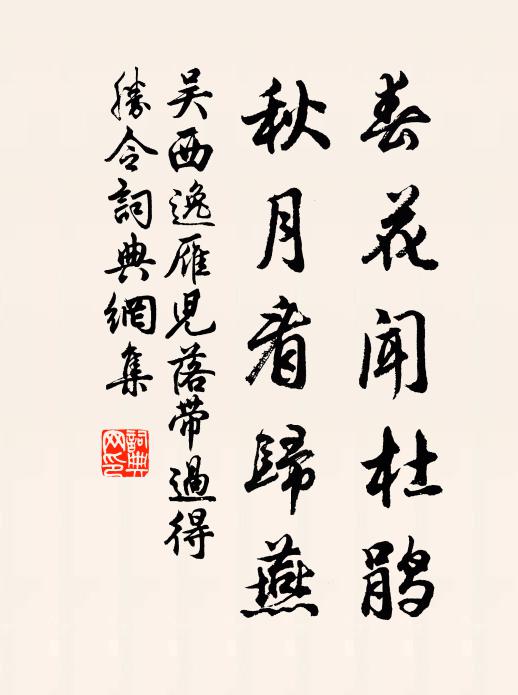 春花闻杜鹃
秋月看歸燕
吴西逸雁児落帶過得
勝令詞典網集
詞典
网印